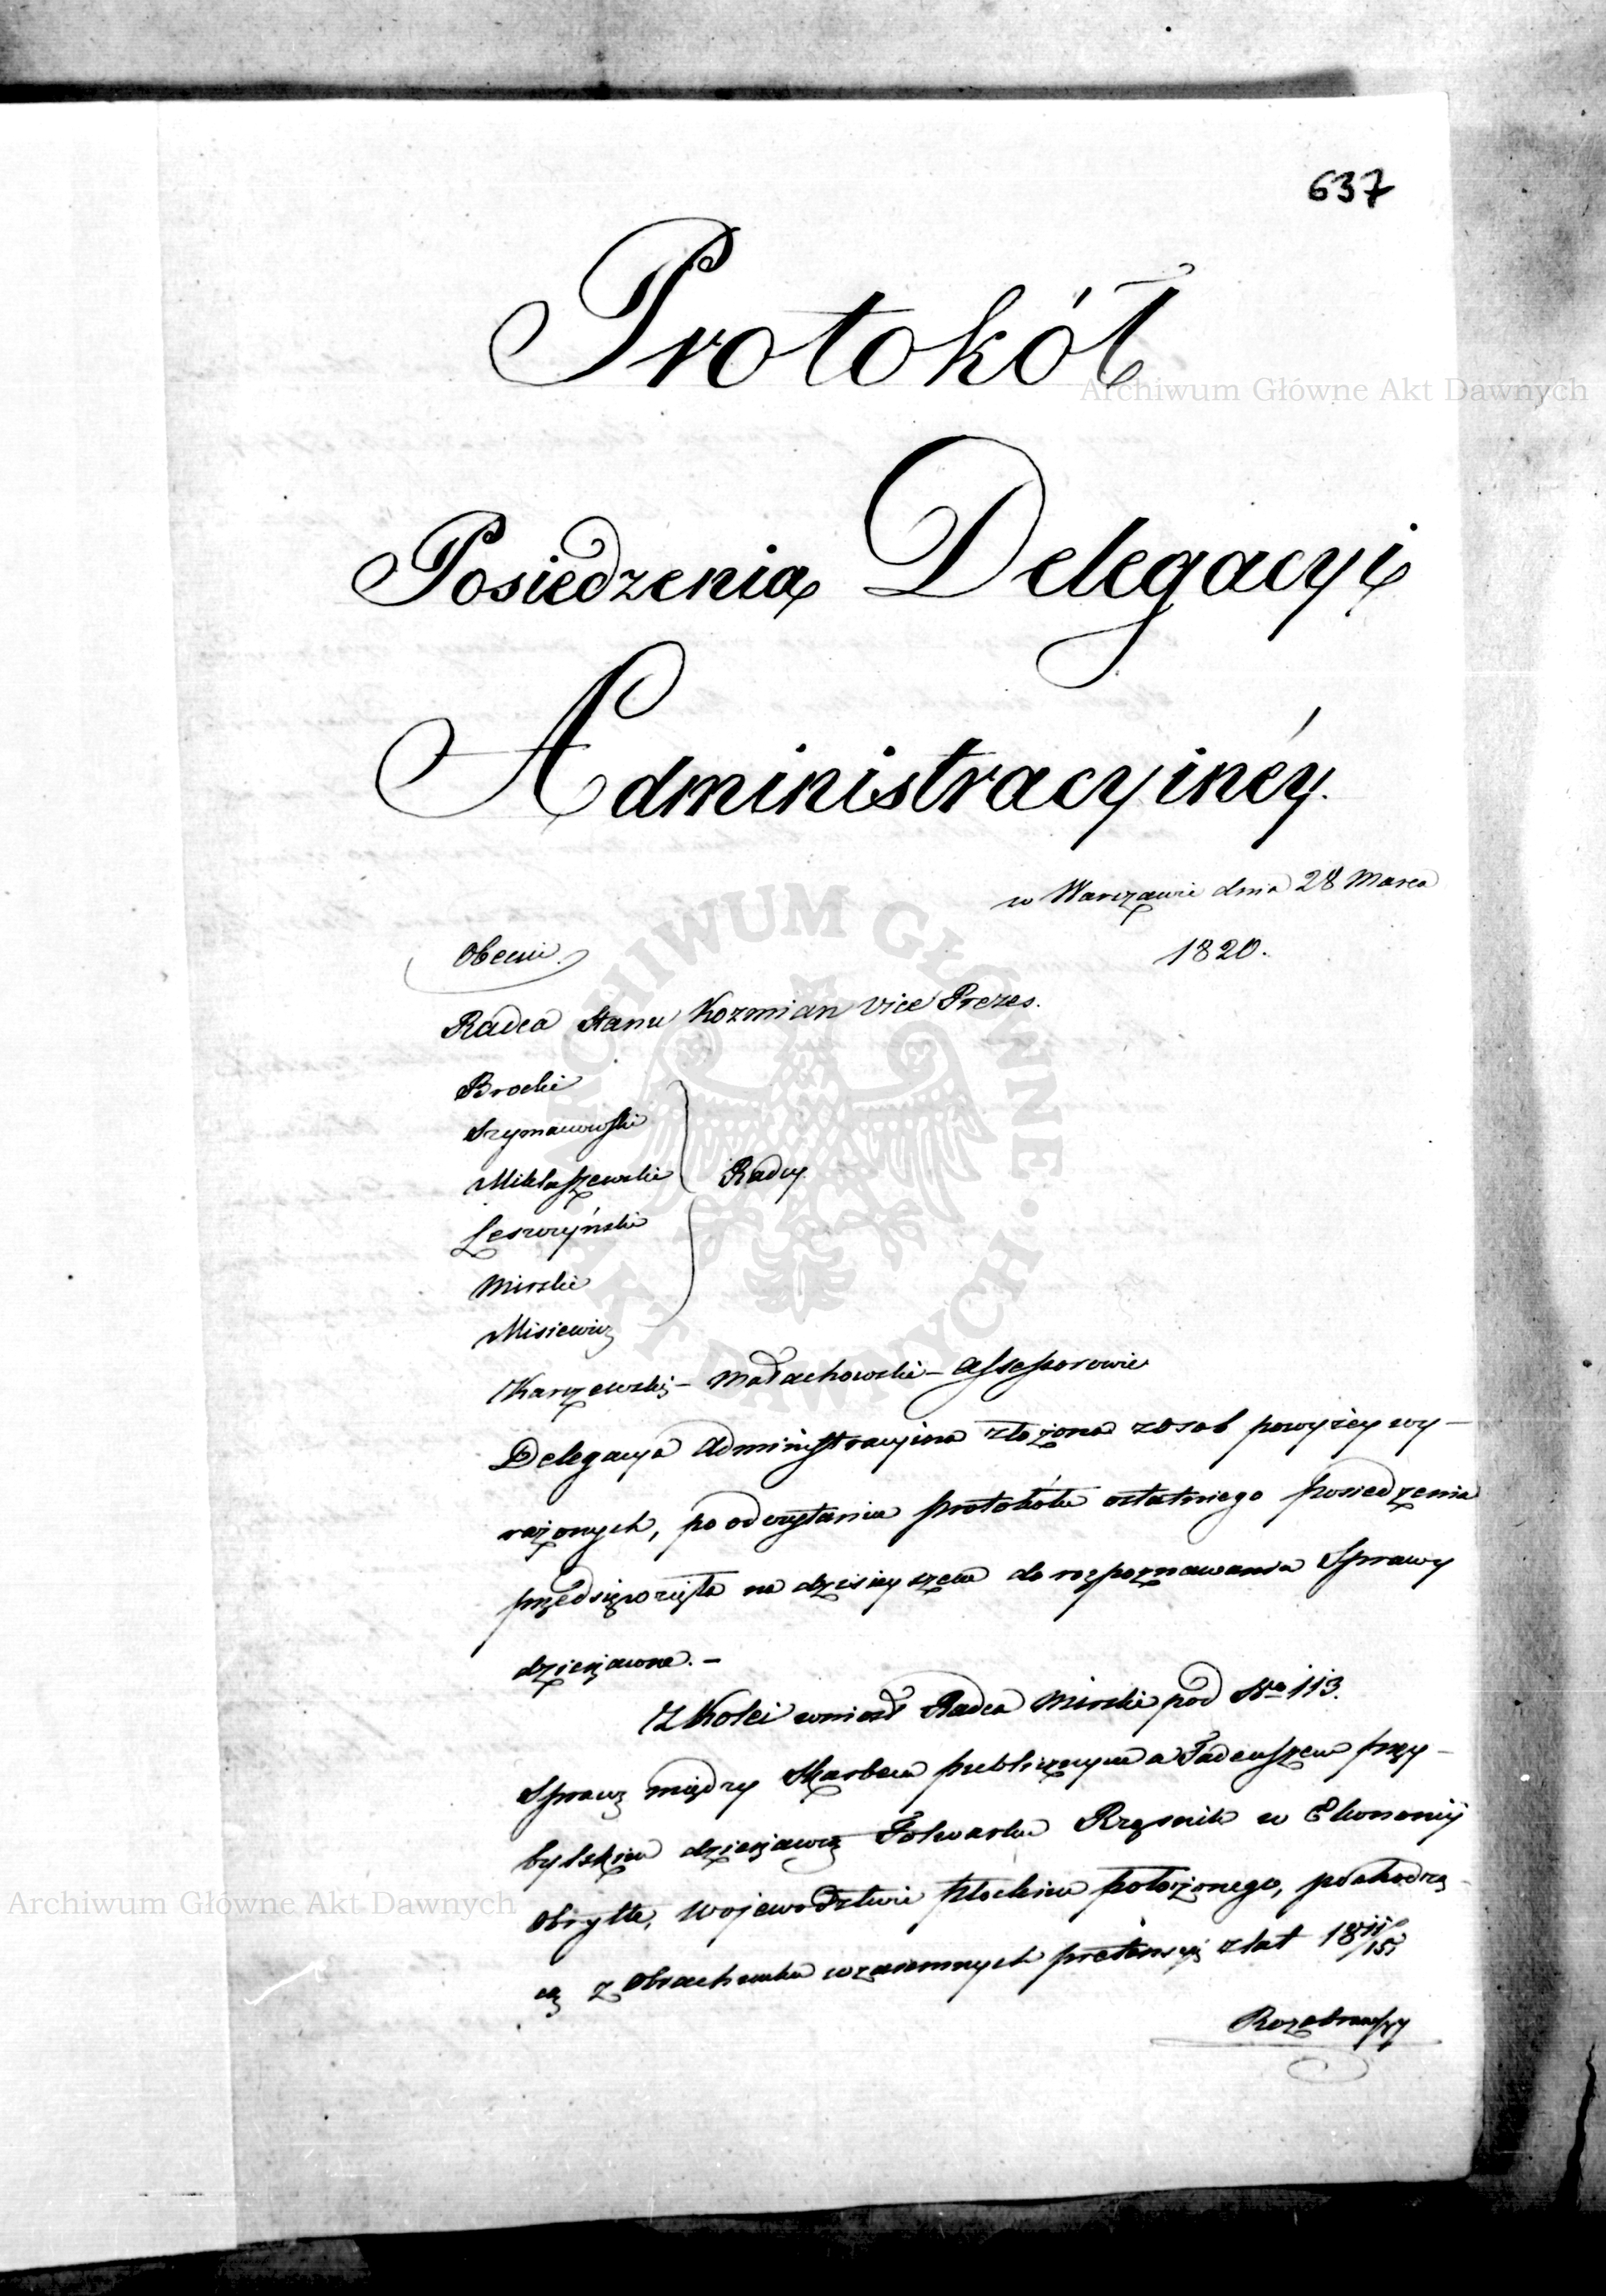 637
Protokół
Posiedzenia Delegacyi
Administracyinéy.
w Warszawie dnia 28 Marca
1820.
Obecni.
Radca Stanu Kozmian Vice Prezes.
Brocki
Szymanowski
Miklaszewski
Radcy
Leszczyński
Mirski
Misiewicz
Karczewski – Małachowski – Assessorowie
Delegacya Administracyina złożona z osob powyżey wy–
rażonych, po odczytaniu protokółu ostatniego posiedzenia
przedsięwzięła na dzisieyszem do rozpoznawania Sprawy
dzierżawne. –
Z Kolei wniosł Radca Mirski pod Nro 113.
Sprawę między Skarbem publicznym a Tadeuszem Przy–
bylskim dzierżawcą Folwarku Rząśnik w Ekonomii
Obrytte, Województwie Płockim położonego, pochodzą–
cą z Obrachunku wzaiemnych pretensyi z lat 18 11/15.
Rozebrawszy
Archiwum Główne Akt Dawnych
Archiwum Główne Akt Dawnych
ARCHIWUM GŁÓWNE AKT DAWNYCH